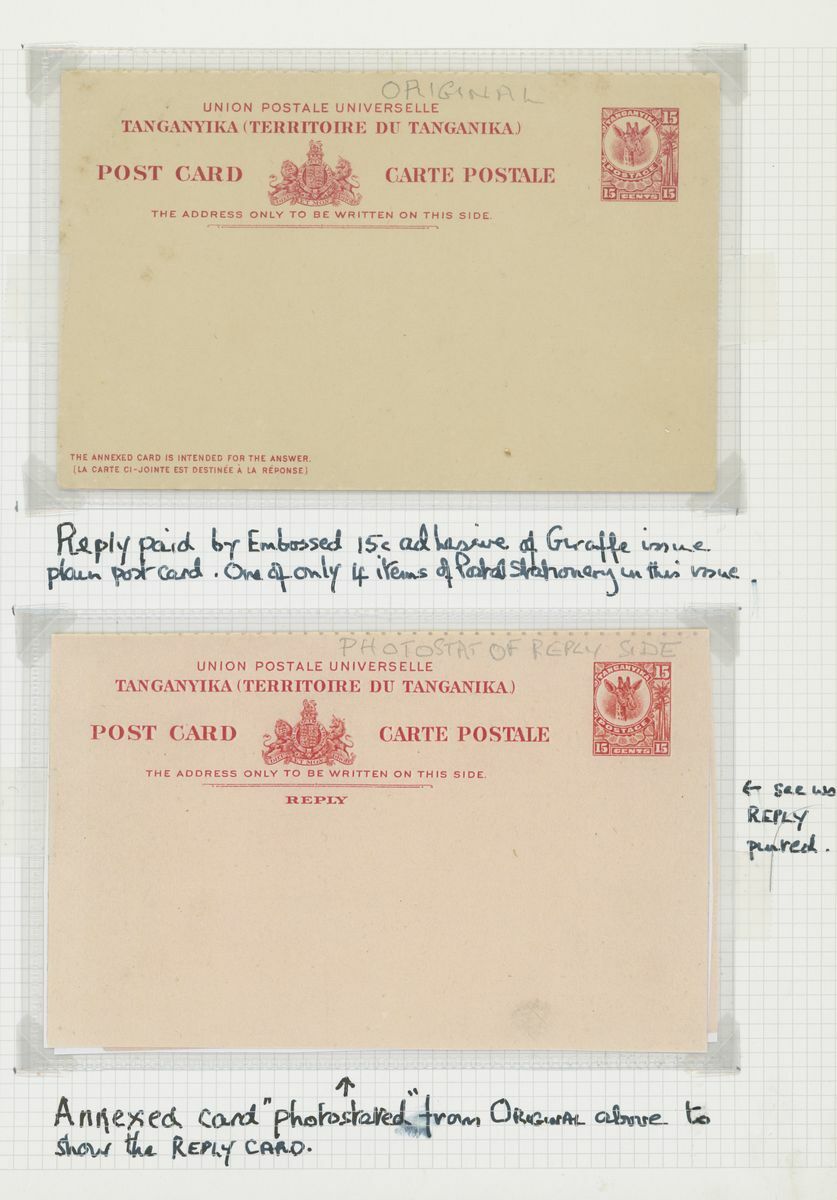 ORIGINAL
UNION POSTALE UNIVERSELLE
TANGANYIKA (TERRITOIRE DU TANGANIKA.)
POST CARD CARTE POSTALE
THE ADDRESS ONLY TO BE WRITTEN ON THIS SIDE.
TANGANYIKA 15
POSTAGE
15 CENTS 15
THE ANNEXED CARD IS INTENDED FOR THE ANSWER.
[LA CARTE CI-JOINTE EST DESTINÉE À LA RÉPONSE]
Reply paid by Embossed 15c adhesive of Giraffe issue
plain post card. One of only 4 items of Postal Stationery in this issue.
PHOTOSTAT OF REPLY SIDE
UNION POSTALE UNIVERSELLE
TANGANYIKA (TERRITOIRE DU TANGANIKA.)
POST CARD CARTE POSTALE
THE ADDRESS ONLY TO BE WRITTEN ON THIS SIDE.
REPLY
TANGANYIKA 15
POSTAGE
15 CENTS 15
← see wo
REPLY
Annexed card "photostated" from ORIGINAL above to
show the REPLY CARD.